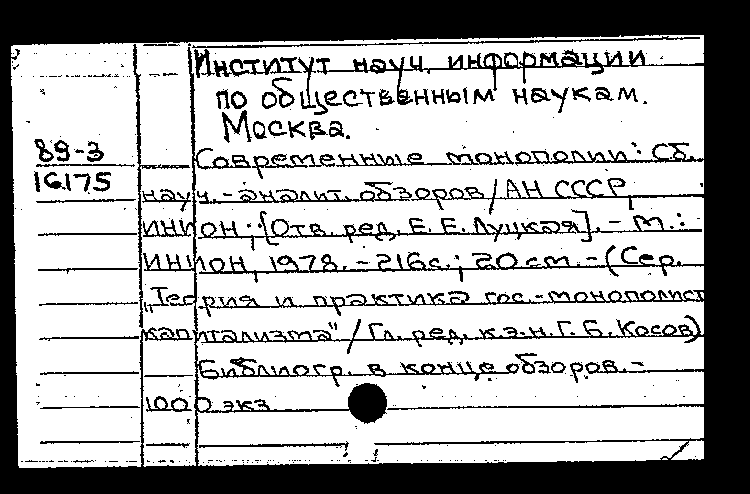 Институт науч. информации
по общественным наукам.
Москва.
89-3
16175
Современные монополии: Сб.
науч.-аналит. обзоров/АН СССР,
ИНИОН; [Отв. ред. Е. Е. Луцкая]. - М.:
ИНИОН, 1978. - 216с.; 20 см. - (Сер.
„Теория и практика гос.-монополист
капитализма"/Гл. ред. к.э.н. Г. Б. Косов)
Библиогр. в конце обзоров. -
1000 экз